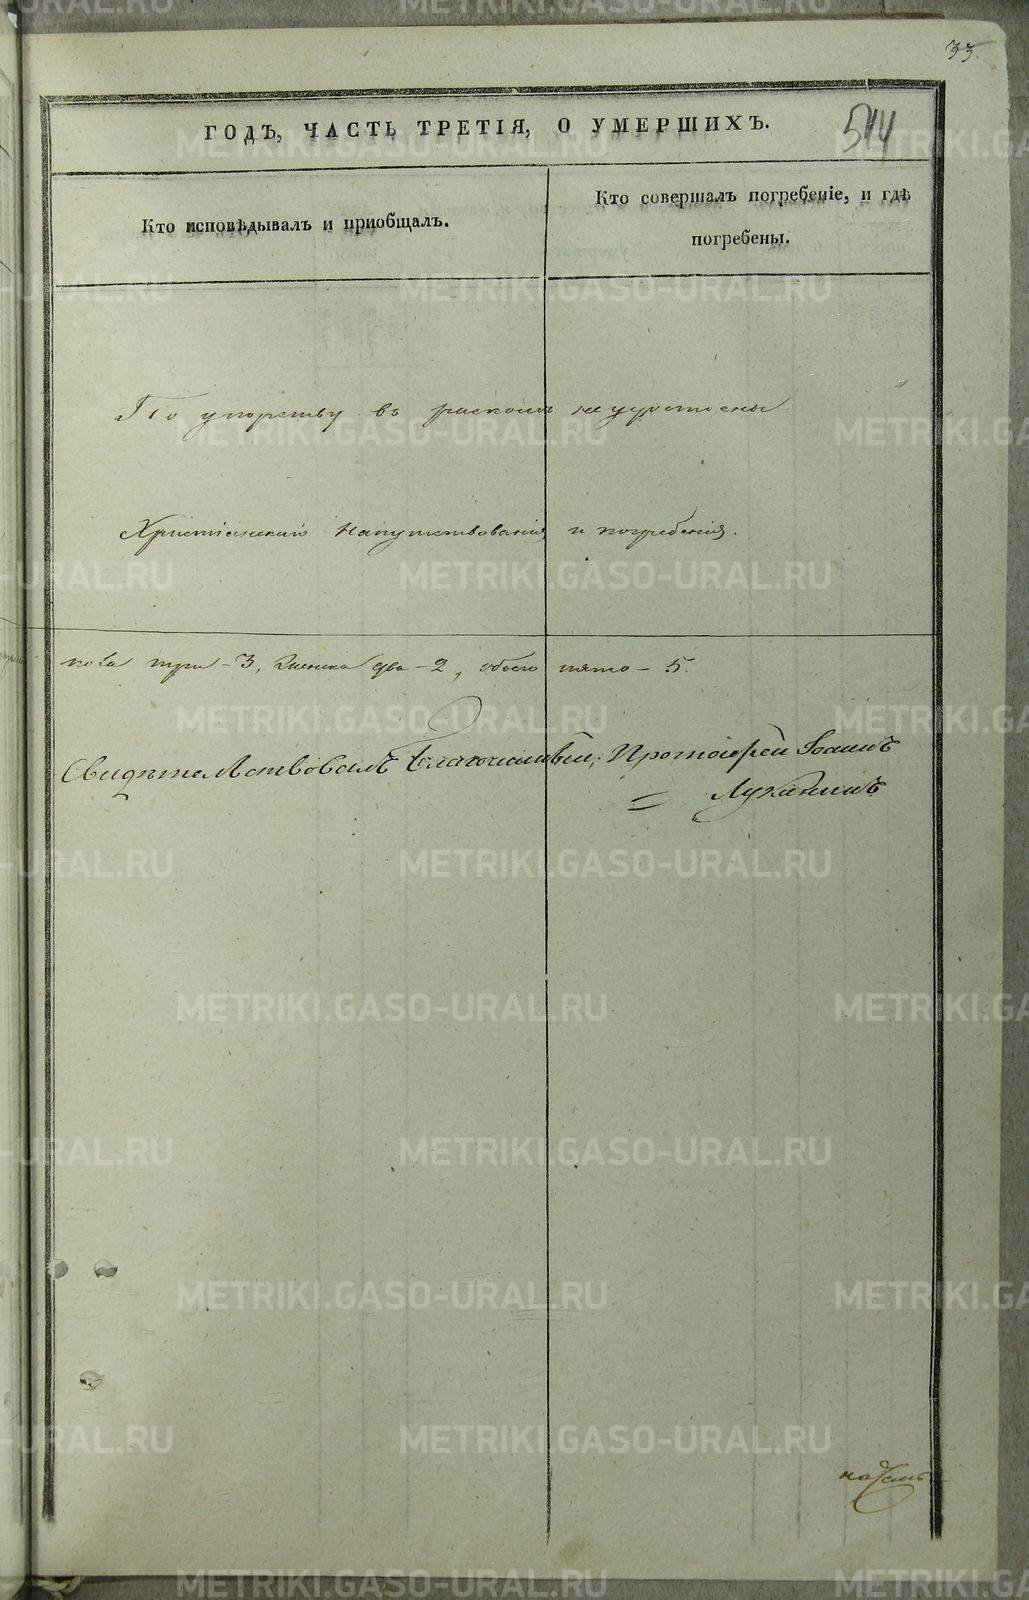 33.
ГОДЪ, ЧАСТЬ ТРЕТІЯ, О УМЕРШИХЪ.
544
Кто исповѣдывалъ и пріобщалъ.
Кто совершалъ погребеніе, и гдѣ
погребены.
По упорству въ расколѣ не удостоены
Христіанскаго напутствованія и погребенія.
пола три – 3, женска два – 2, обоего пято – 5.
Свидѣтельствовалъ Благочинный, Протоіерей Іоаннъ
Луканинъ
METRIKI.GASO-URAL.RU